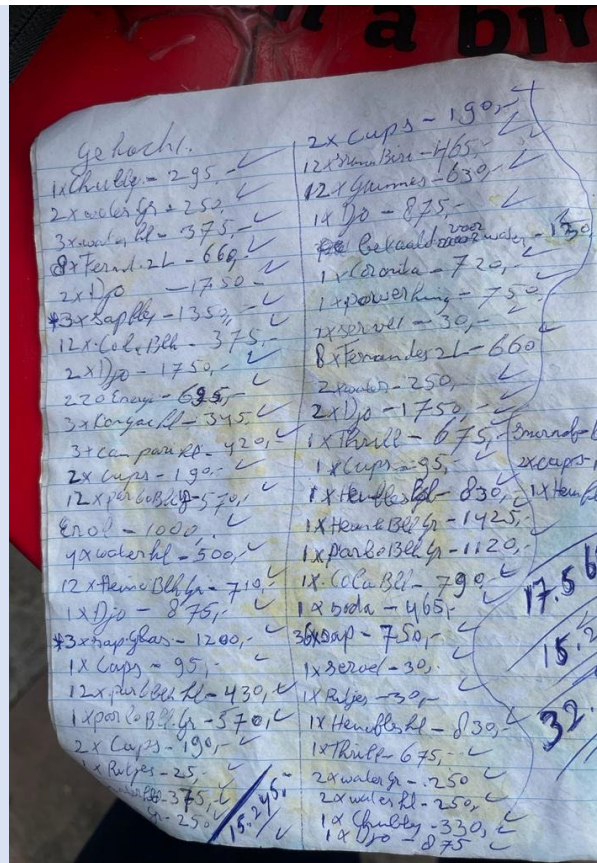 a bir
gekocht.
1x Chubby - 295,-
2x water gr - 250,-
3x water hl - 375,-
8x Fernd. 2L - 660,-
2x Djo - 1750 -
*3x Sap bley - 1350,-
12x Cola Blk - 375,-
2x Djo - 1750,-
Energ - 695,-
3x hl - 345,-
3x campari - 420,-
2x Cups - 190,-
12x parbo Blk gr - 570,-
Erol - 1000,-
4x water hl - 500,-
12x Heine Blk gr - 710,-
1x Djo - 875,-
*3x sap glas - 1200,-
1x Cups - 95,-
12x parb Blk hl - 430,-
1x parbo Blk gr - 570,-
2x Cups - 190,-
1x Rietjes - 25,-
375,-
gr - 250,-
15.245,-
2x Cups - 190,-
12x - 465,-
12x - 630,-
1x Djo - 875,-
betaald voor water - 130
1x Coronita - 720,-
1x power king - 750,-
1x servet - 30,-
8x Fernandes 2L - 660
2x water - 250,-
2x Djo - 1750,-
1x Thrill - 675,-
1x Cups - 95,-
1x Heinfles hl - 830,-
1x Heine Blk gr - 1425,-
1x parbo Blk gr - 1120,-
1x Cola Blk - 790,-
1x soda - 465,-
36x sap - 750,-
1x servet - 30,-
1x Rietjes - 30,-
1x Heinfles hl - 830,-
1x Thrill - 675,-
2x water gr - 250
2x water hl - 250,-
1x Chubby - 330,-
1x Djo - 875
2x cups
1x Hein
17.56
15.2
32.